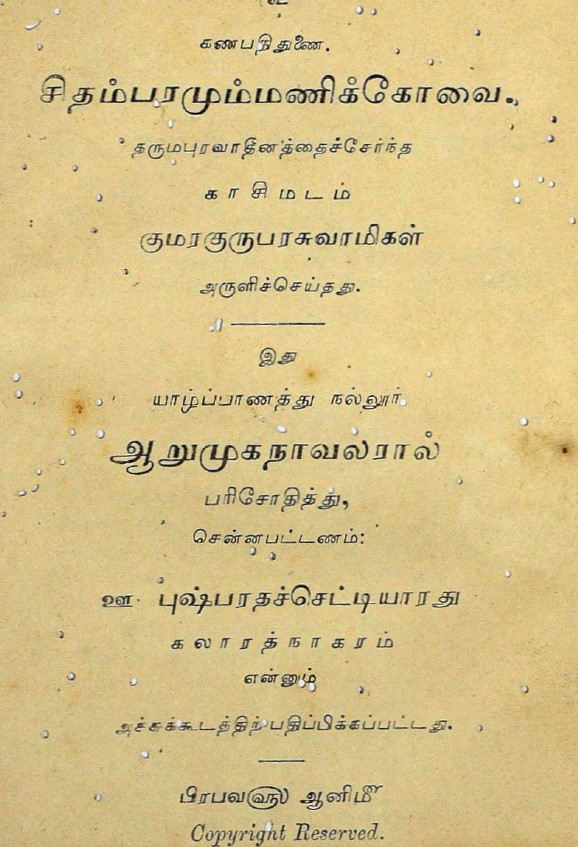 உ
கணபதிதுணை.
சிதம்பரமும்மணிக்கோவை.
தருமபுரவாதீனத்தைச்சேர்ந்த
காசிமடம்
குமரகுருபரசுவாமிகள்
அருளிச்செய்தது.
இது
யாழ்ப்பாணத்து நல்லூர்
ஆறுமுகநாவலரால்
பரிசோதித்து,
சென்னபட்டணம்:
ஊ. புஷ்பரதச்செட்டியாரது
கலாரத்நாகரம்
என்னும்
அச்சுக்கூடத்திற்பதிப்பிக்கப்பட்டது.
பிரபவ௵ ஆனி௴
Copyright Reserved.